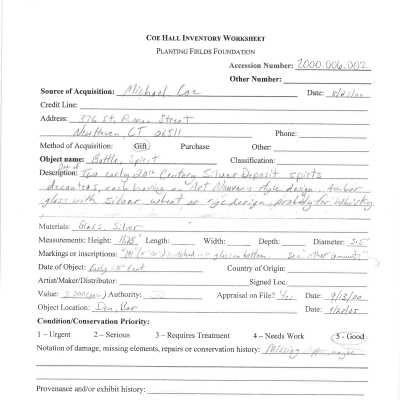 COE HALL INVENTORY WORKSHEET
PLANTING FIELDS FOUNDATION
Accession Number: 2000.006.002
Other Number:
Source of Acquisition: Michael Coe Date: 8/21/00
Credit Line:
Address: 376 St. Ronan Street
New Haven, CT 06511 Phone:
Method of Acquisition: Gift Purchase Other:
Object name: Bottle, Spirit Classification:
Description: Two early 20th Century Silver Deposit spirits
decanters, each having an Art Nouveau style design. Amber
glass with silver wheat or rye design, probably for whiskey
Materials: Glass, Silver
Measurements: Height: 11.25" Length: Width: Depth: Diameter: 3.5"
Markings or inscriptions: in glass on bottom. See "other comments"
Date of Object: Early 20th Cent Country of Origin:
Artist/Maker/Distributor: Signed Loc:
Value: Authority: Appraisal on File? Yes Date: 9/13/00
Object Location: Den, Bar Date:
Condition/Conservation Priority:
1 – Urgent 2 – Serious 3 – Requires Treatment 4 – Needs Work 5 - Good
Notation of damage, missing elements, repairs or conservation history: Missing
Provenance and/or exhibit history: